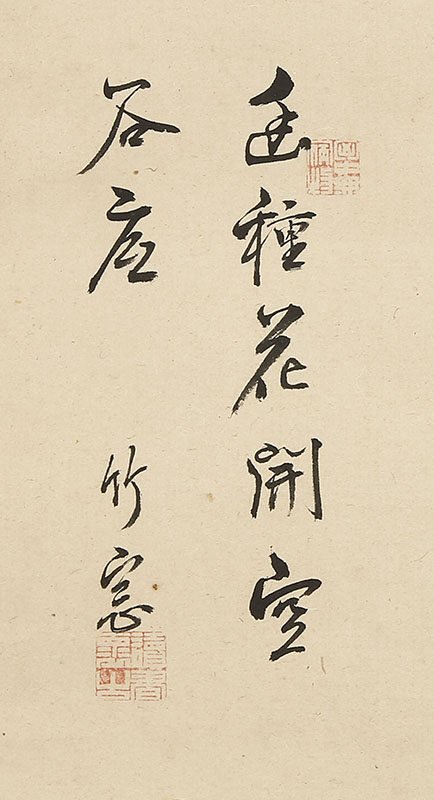 種花開空
谷底
竹窓